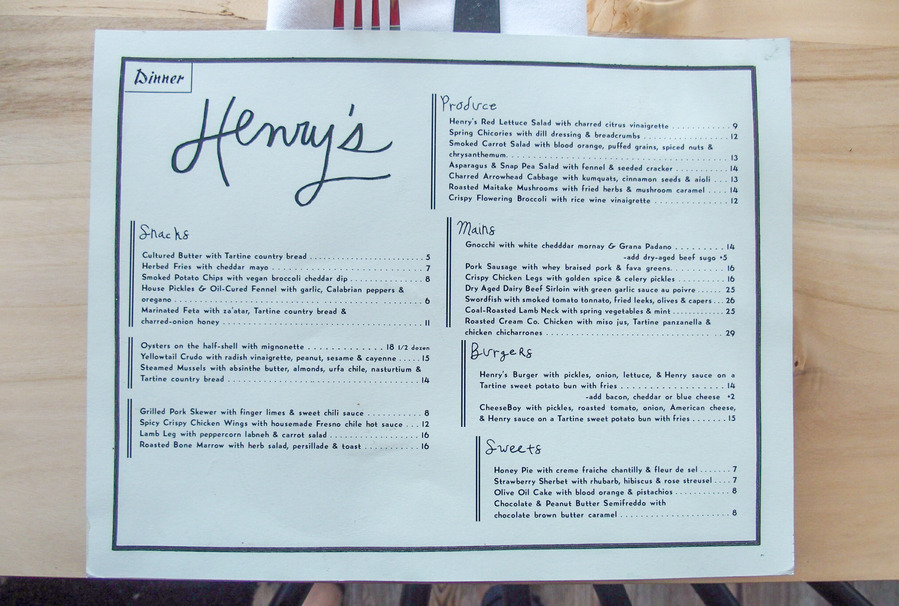 Dinner
Henry's
Snacks
Cultured Butter with Tartine country bread . . . . . . . . . . . . . . . . . . . . . . . . . . 5
Herbed Fries with cheddar mayo . . . . . . . . . . . . . . . . . . . . . . . . . . . . . . . . . . 7
Smoked Potato Chips with vegan broccoli cheddar dip . . . . . . . . . . . . . . . . . 8
House Pickles & Oil-Cured Fennel with garlic, Calabrian peppers &
oregano . . . . . . . . . . . . . . . . . . . . . . . . . . . . . . . . . . . . . . . . . . . . . . . . . . . . . 6
Marinated Feta with za'atar, Tartine country bread &
charred-onion honey . . . . . . . . . . . . . . . . . . . . . . . . . . . . . . . . . . . . . . . . . . . 11
Oysters on the half-shell with mignonette . . . . . . . . . . . . . . . . . . . 18 1/2 dozen
Yellowtail Crudo with radish vinaigrette, peanut, sesame & cayenne . . . . . 15
Steamed Mussels with absinthe butter, almonds, urfa chile, nasturtium &
Tartine country bread . . . . . . . . . . . . . . . . . . . . . . . . . . . . . . . . . . . . . . . . . . 14
Grilled Pork Skewer with finger limes & sweet chili sauce . . . . . . . . . . . . 8
Spicy Crispy Chicken Wings with housemade Fresno chile hot sauce . . . 12
Lamb Leg with peppercorn labneh & carrot salad . . . . . . . . . . . . . . . . . . . 16
Roasted Bone Marrow with herb salad, persillade & toast . . . . . . . . . . . 16
Produce
Henry's Red Lettuce Salad with charred citrus vinaigrette . . . . . . . . . . . . 9
Spring Chicories with dill dressing & breadcrumbs . . . . . . . . . . . . . . . . . . 12
Smoked Carrot Salad with blood orange, puffed grains, spiced nuts &
chrysanthemum. . . . . . . . . . . . . . . . . . . . . . . . . . . . . . . . . . . . . . . . . . . . . . . 13
Asparagus & Snap Pea Salad with fennel & seeded cracker . . . . . . . . . . . 14
Charred Arrowhead Cabbage with kumquats, cinnamon seeds & aioli . . . 13
Roasted Maitake Mushrooms with fried herbs & mushroom caramel . . . . 14
Crispy Flowering Broccoli with rice wine vinaigrette . . . . . . . . . . . . . . . . 12
Mains
Gnocchi with white chedddar mornay & Grana Padano . . . . . . . . . 14
-add dry-aged beef sugo +5
Pork Sausage with whey braised pork & fava greens. . . . . . . . . . . 16
Crispy Chicken Legs with golden spice & celery pickles . . . . . . . . . . 16
Dry Aged Dairy Beef Sirloin with green garlic sauce au poivre . . . . . 25
Swordfish with smoked tomato tonnato, fried leeks, olives & capers . . . 26
Coal-Roasted Lamb Neck with spring vegetables & mint . . . . . . . . . . . 25
Roasted Cream Co. Chicken with miso jus, Tartine panzanella &
chicken chicharrones . . . . . . . . . . . . . . . . . . . . . . . . . . . . . . . . . . . . . . 29
Burgers
Henry's Burger with pickles, onion, lettuce, & Henry sauce on a
Tartine sweet potato bun with fries . . . . . . . . . . . . . . . . . . . . . . . 14
-add bacon, cheddar or blue cheese +2
CheeseBoy with pickles, roasted tomato, onion, American cheese,
& Henry sauce on a Tartine sweet potato bun with fries . . . . . . . 15
Sweets
Honey Pie with creme fraiche chantilly & fleur de sel . . . . . . . 7
Strawberry Sherbet with rhubarb, hibiscus & rose streusel . . . . 7
Olive Oil Cake with blood orange & pistachios . . . . . . . . . . . . . 8
Chocolate & Peanut Butter Semifreddo with
chocolate brown butter caramel . . . . . . . . . . . . . . . . . . . . . . . . . 8